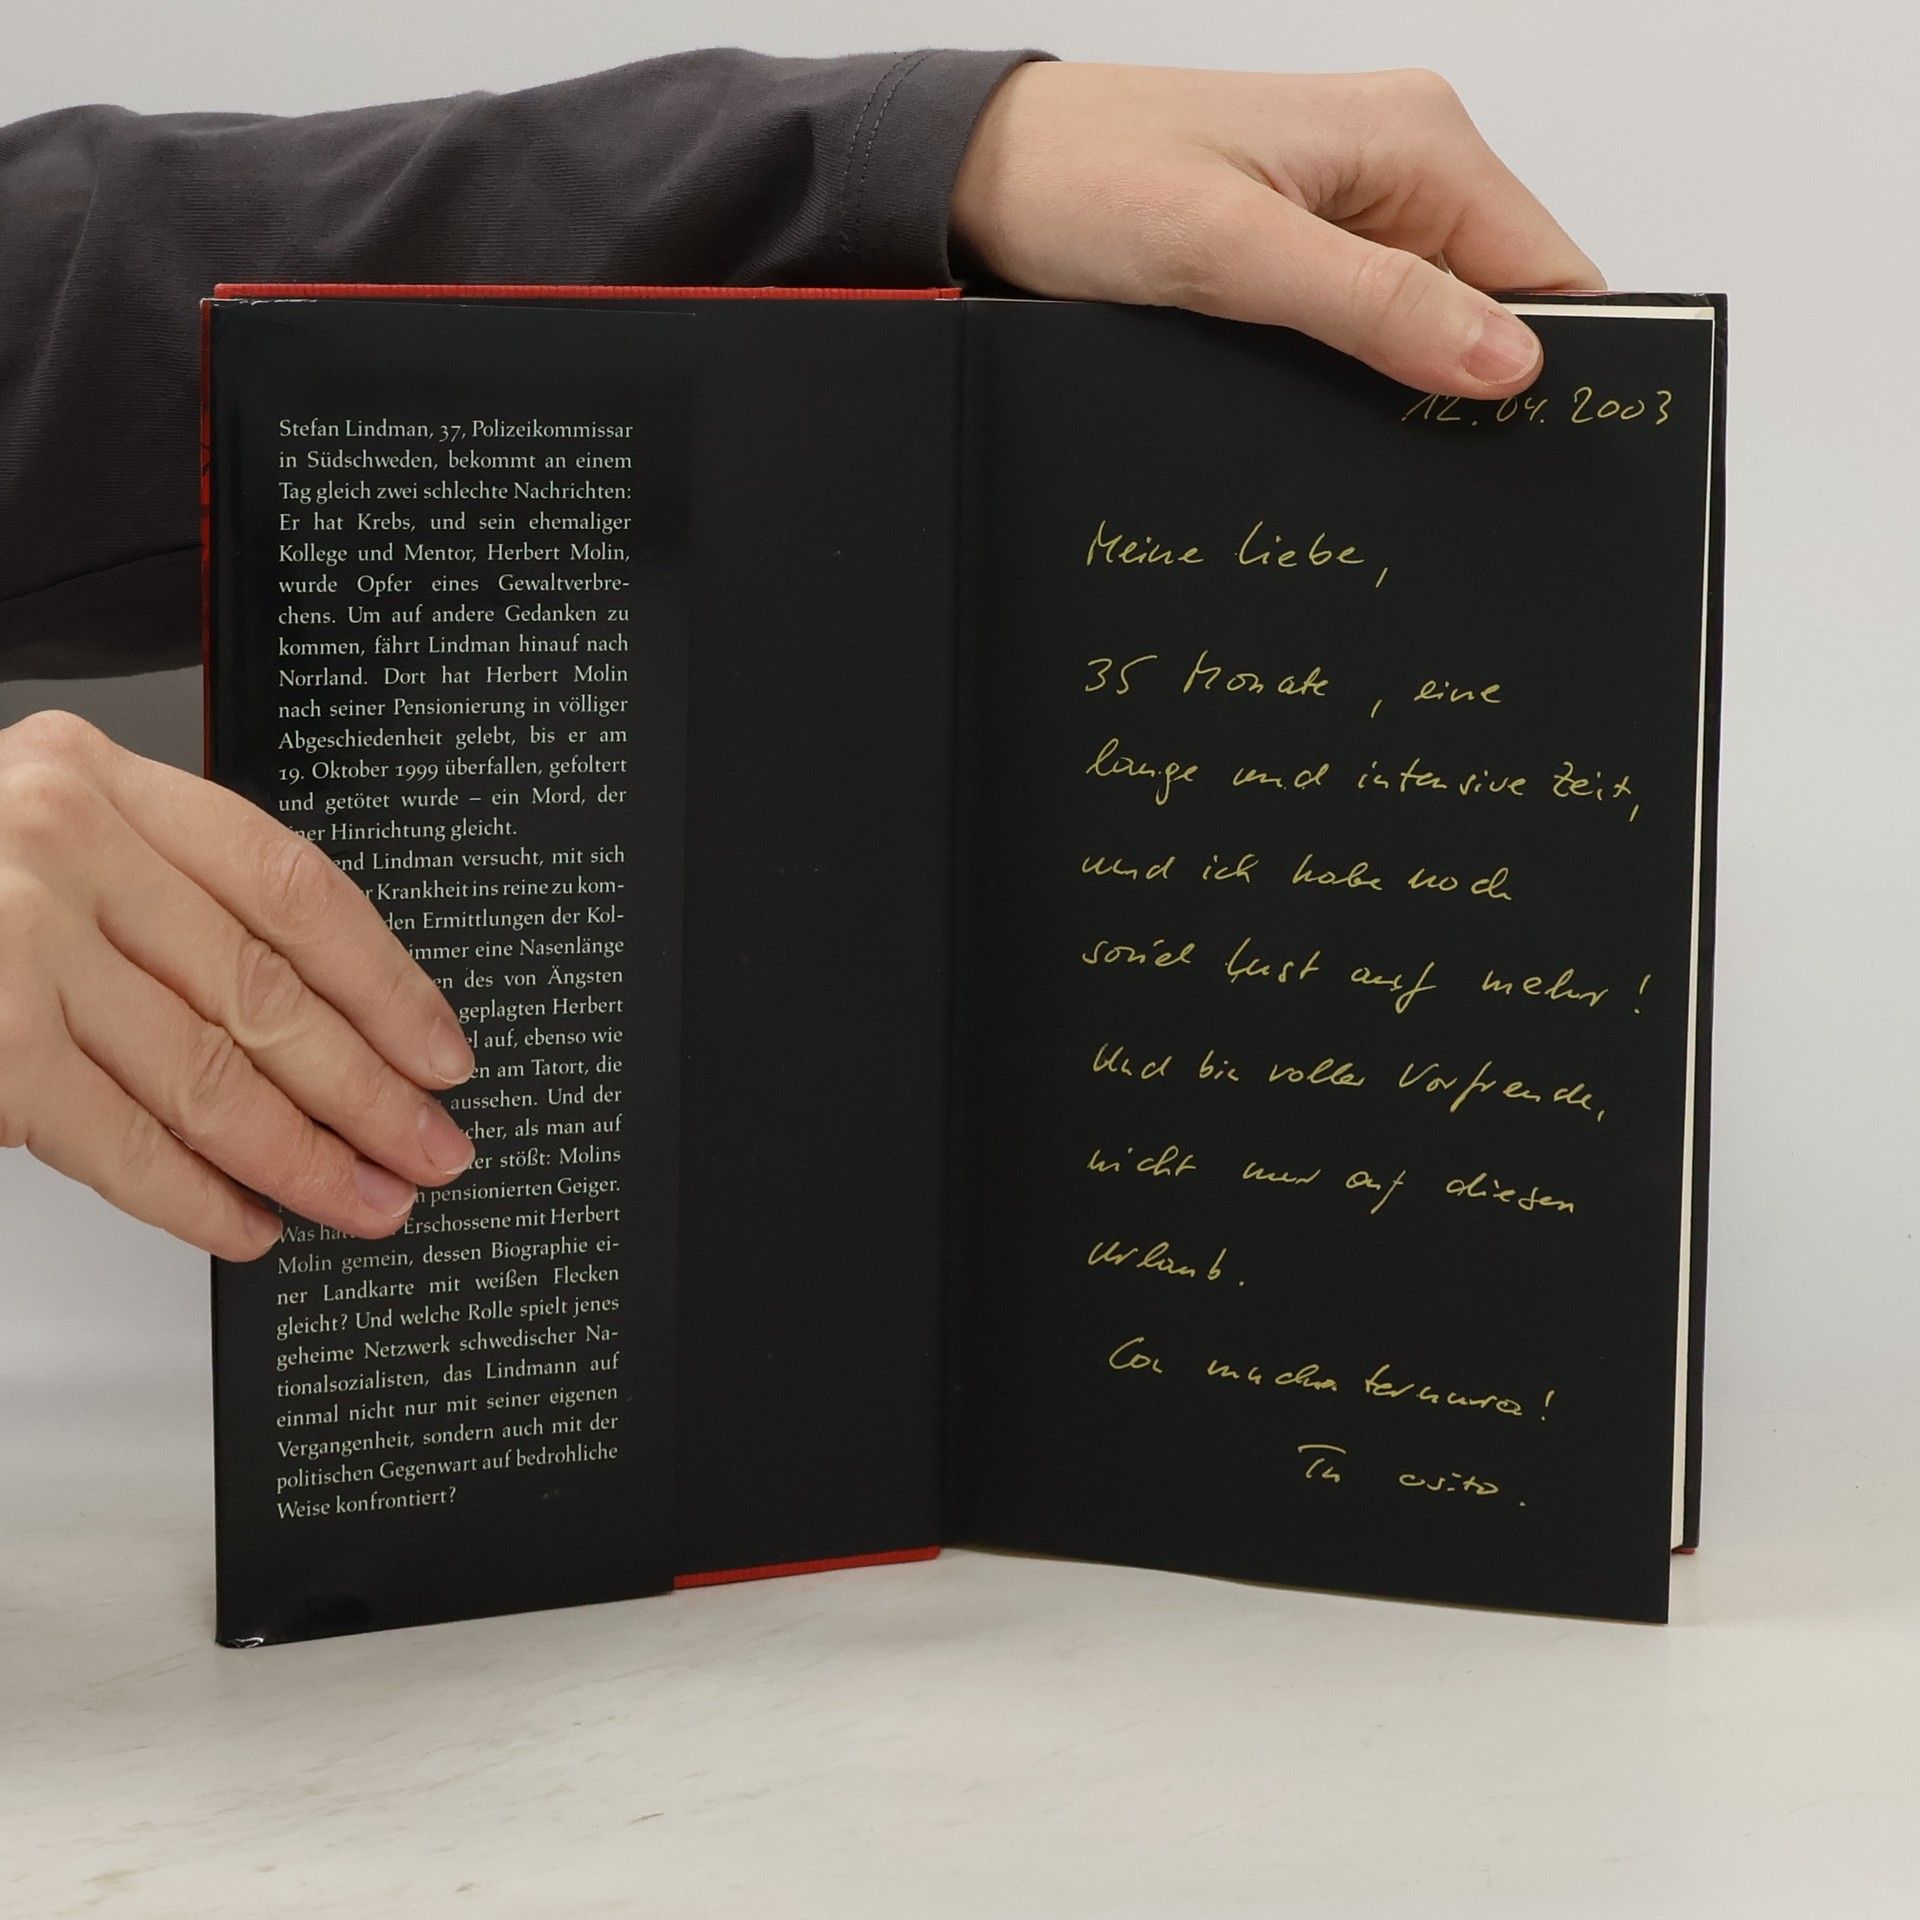 Stefan Lindman, 37, Polizeikommissar
in Südschweden, bekommt an einem
Tag gleich zwei schlechte Nachrichten:
Er hat Krebs, und sein ehemaliger
Kollege und Mentor, Herbert Molin,
wurde Opfer eines Gewaltverbre-
chens. Um auf andere Gedanken zu
kommen, fährt Lindman hinauf nach
Norrland. Dort hat Herbert Molin
nach seiner Pensionierung in völliger
Abgeschiedenheit gelebt, bis er am
19. Oktober 1999 überfallen, gefoltert
und getötet wurde – ein Mord, der
Hinrichtung gleicht.
Lindman versucht, mit sich
Krankheit ins reine zu kom-
den Ermittlungen der Kol-
immer eine Nasenlänge
des von Ängsten
geplagten Herbert
auf, ebenso wie
am Tatort, die
aussehen. Und der
als man auf
stößt: Molins
pensionierten Geiger.
Was Erschossene mit Herbert
Molin gemein, dessen Biographie ei-
ner Landkarte mit weißen Flecken
gleicht? Und welche Rolle spielt jenes
geheime Netzwerk schwedischer Na-
tionalsozialisten, das Lindmann auf
einmal nicht nur mit seiner eigenen
Vergangenheit, sondern auch mit der
politischen Gegenwart auf bedrohliche
Weise konfrontiert?
12.04.2003
Meine Liebe,
35 Monate, eine
lange und intensive Zeit,
und ich habe noch
soviel Lust auf mehr!
Und bin voller Vorfreude,
nicht nur auf diesen
Urlaub.
Con mucha ternura!
Tu osito.